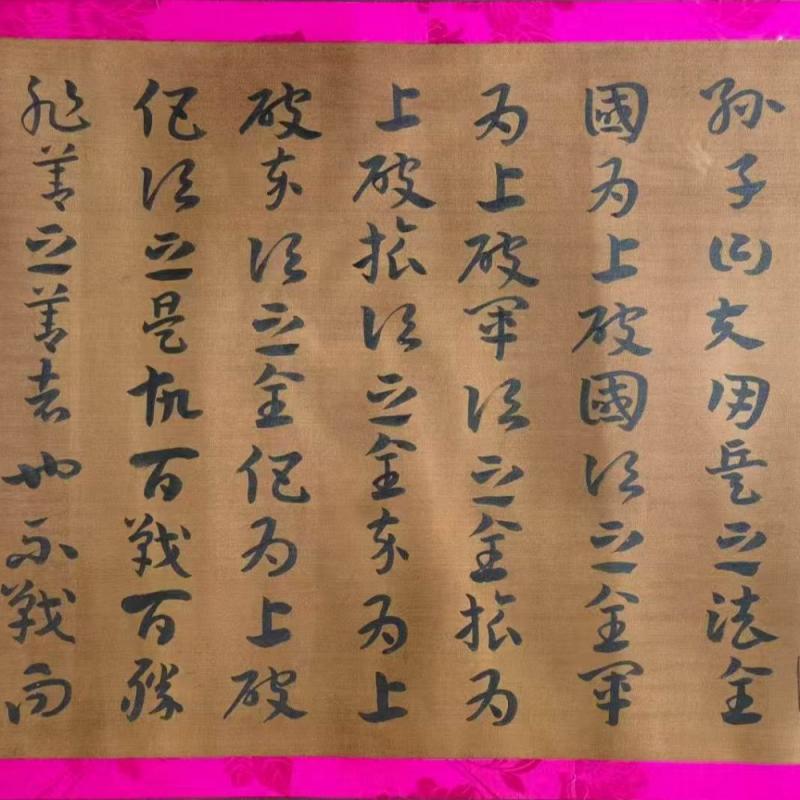 孙子曰夫用兵之法全
國为上破國次之全军
为上破军次之全旅为
上破旅次之全卒为上
破卒次之全伍为上破
伍次之是故百戰百勝
非善之善者也不戰而